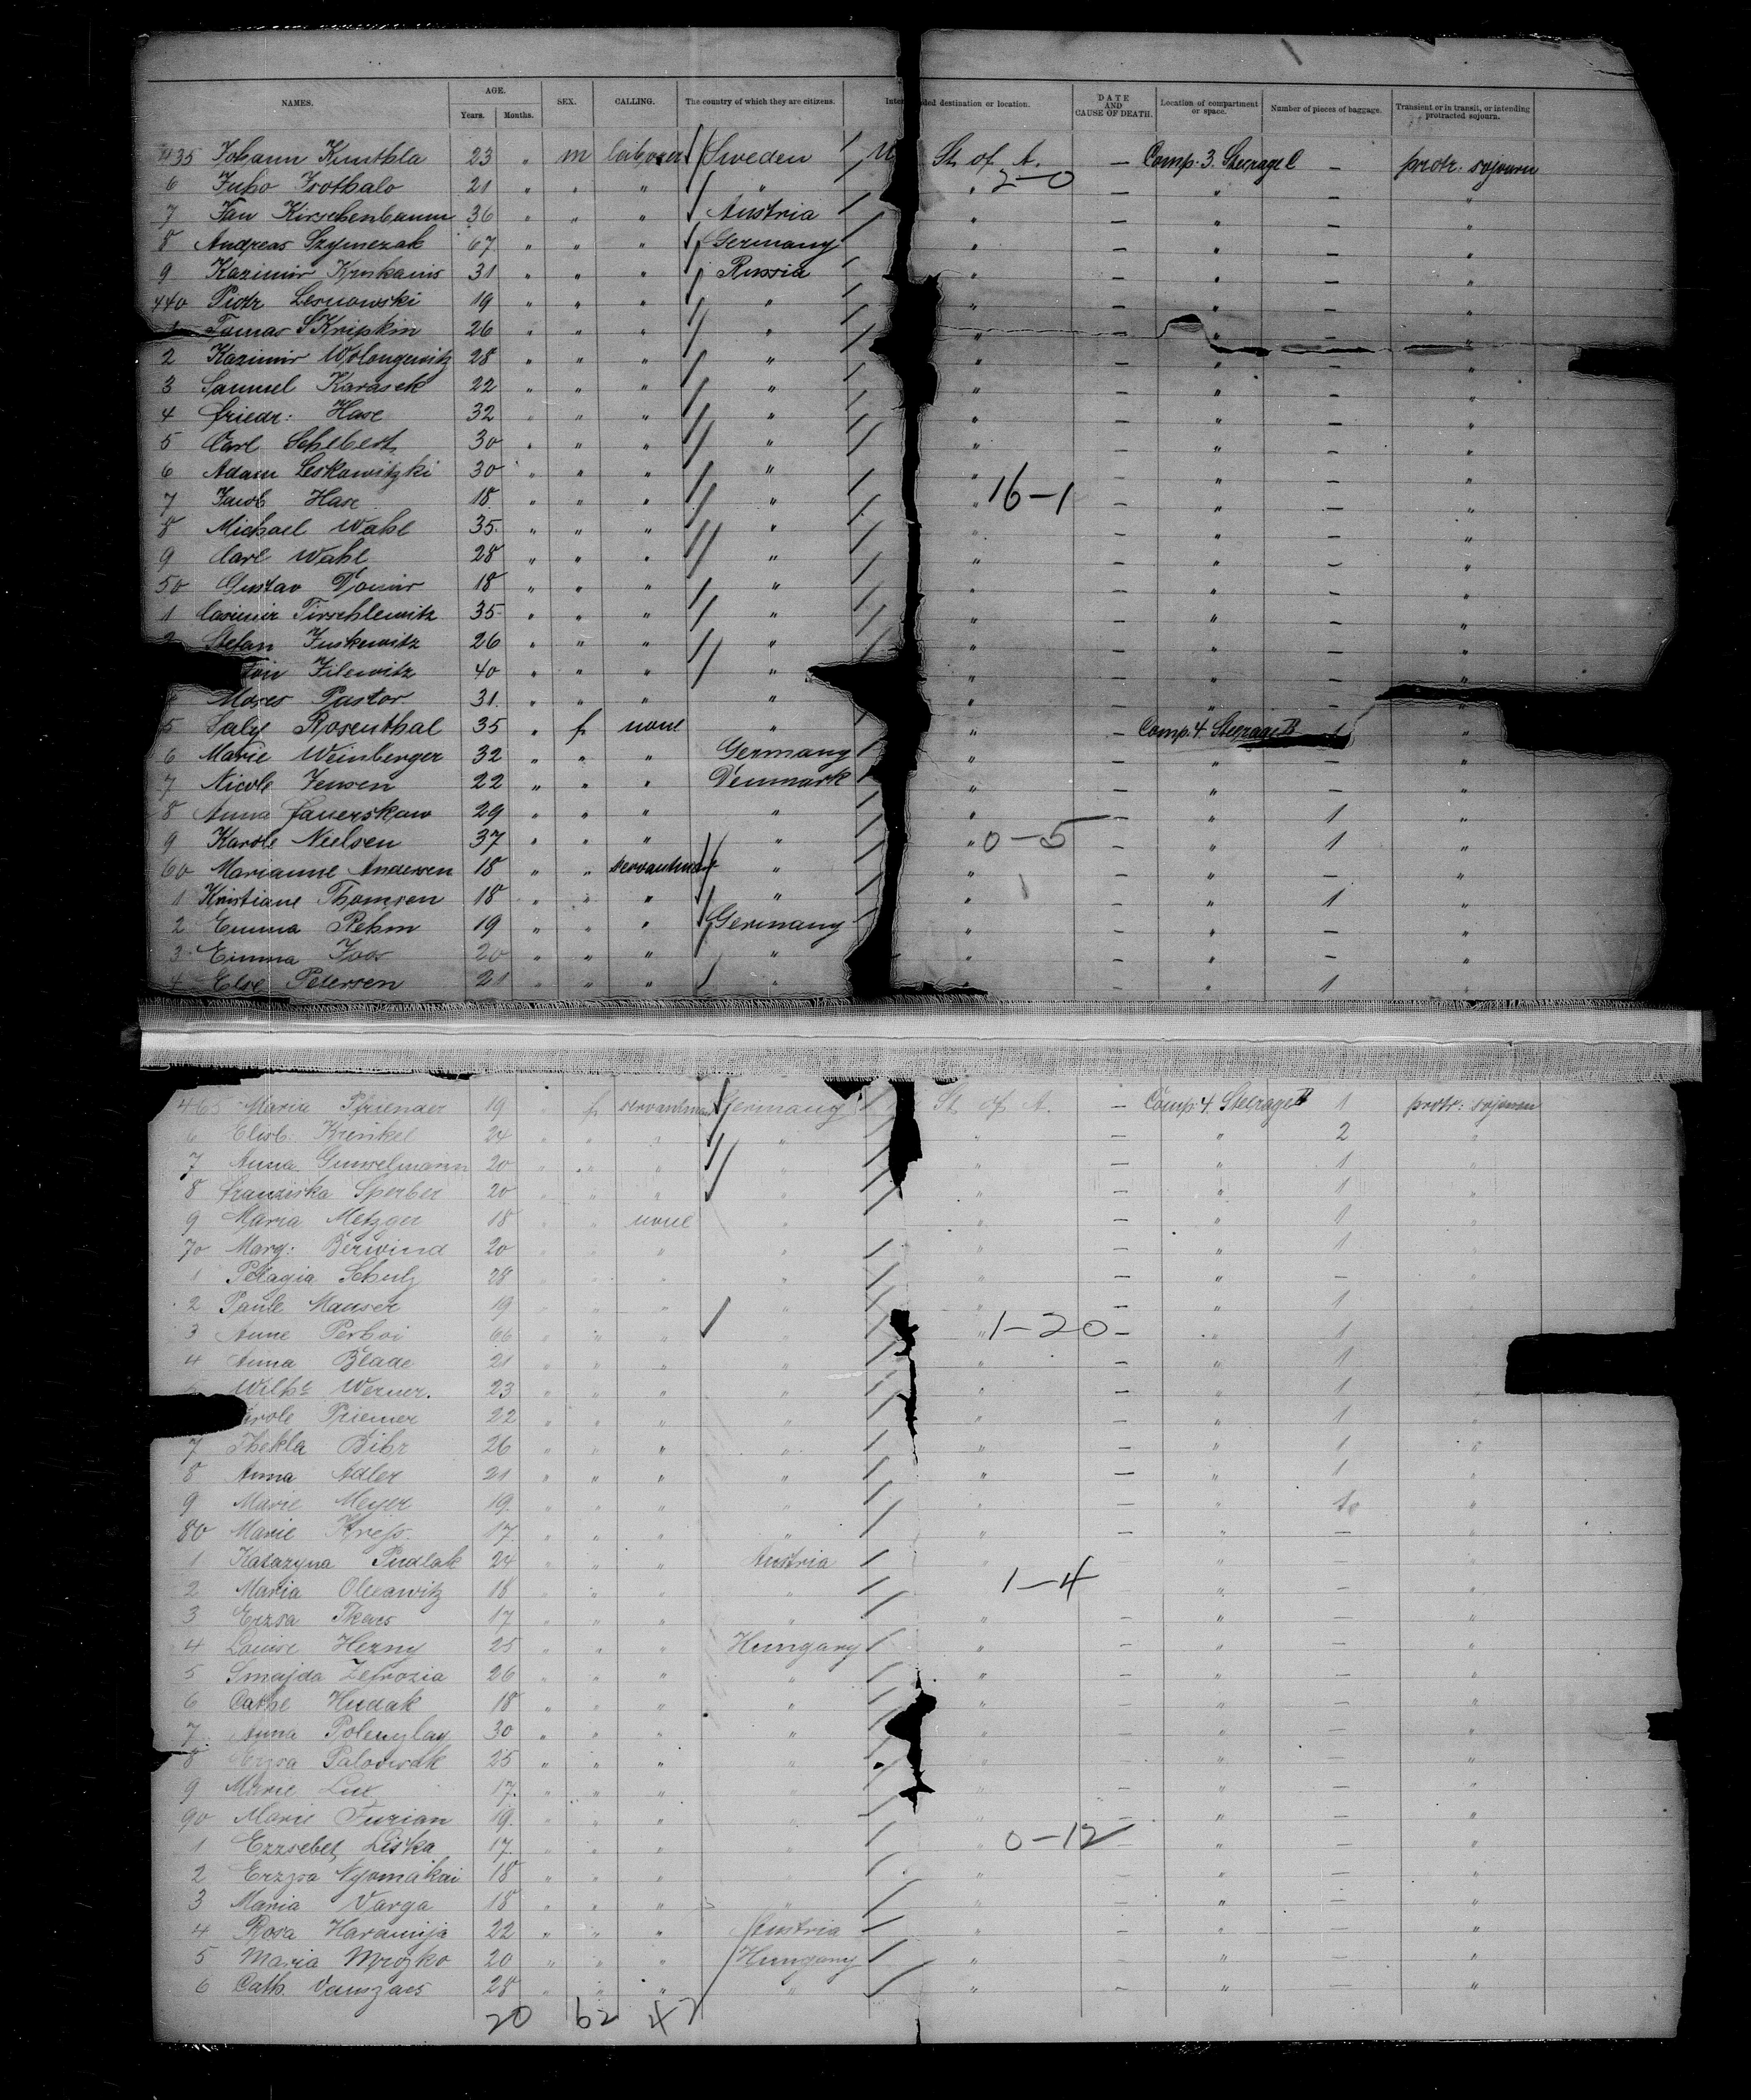 NAMES. AGE. SEX. CALLING. The country of which they are citizens. Intended destination or location. DATE AND CAUSE OF DEATH. Location of compartment or space. Number of pieces of baggage. Transient or in transit, or intending protracted sojourn.
Years. Months.
435 Johann 23 " m Sweden U St. of A. — Comp. 3. Steerage C — protr. sojourn
6 Juho 21 " " " " " 2—0 — " — "
7 Jan Kirschenbaum 36 " " " Austria " — " — "
8 Andreas Szymczak 67 " " " Germany " — " — "
9 Kazimir 31 " " " Russia " — " — "
440 Piotr Lesnowski 19 " " " " " — " — "
1 Tomas SKripkin 26 " " " " " — " — "
2 Kazimir 28 " " " " " — " — "
3 Samuel Karasek 22 " " " " " — " — "
4 friedr: Hase 32 " " " " " — " — "
5 Carl Schebert 30 " " " " " — " — "
6 Adam Leskowitzki 30 " " " " " — " — "
7 Jacob Hase 18 " " " " " 16—1 — " — "
8 Michael Wahl 35 " " " " " — " — "
9 Carl Wahl 28 " " " " " — " — "
50 Gustav 18 " " " " " — " — "
1 Casimir 35 " " " " " — " — "
2 Stefan Juskewitz 26 " " " " " — " — "
Filewitz 40 " " " " " — " — "
4 Mores Pastor 31. " " " " " — " — "
5 Saly Rosenthal 35 " f none " " — Comp. 4. Steerage B 1 "
6 Marie Weinberger 32 " " " Germany " — " — "
7 Nicole Jensen 22 " " " Denmark " — " — "
8 Anna 29 " " " " " — " 1 "
9 Karole Nielsen 37 " " " " " 0—5 — " 1 "
60 Marianne Andersen 18 " " " " — " — "
1 Kristiane Thomsen 18 " " " " " — " 1 "
2 Emma Rehm 19 " " " Germany " — " — "
3 Emma Joos 20 " " " " " — " — "
4 Else Petersen 21 " " " " " — " 1 "
465 Maria Pfriender 19 " f Germany St. of A. — Comp. 4. Steerage B 1 protr: sojourn
6 Elisb. Krinkel 24 " " " " " — " 2 "
7 Anna 20 " " " " " — " 1 "
8 franziska Sperber 20 " " " " " — " 1 "
9 Maria Metzger 18 " " none " " — " 1 "
70 Marg: Berwind 20 " " " " " — " 1 "
1 Pelagia Schulz 28 " " " " " — " — "
2 Paule Mauser 19 " " " " " — " 1 "
3 Anne 66 " " " " " 1—20 — " 1 "
4 Anna Blade 21 " " " " " — " 1 "
Wilhe Werner. 23 " " " " " — " 1 "
Priemer 22 " " " " " — " 1 "
7 Thekla Bibr 26 " " " " " — " 1 "
8 Anna Adler 21 " " " " " — " 1 "
9 Marie Meyer 19. " " " " " — " "
80 Marie 17. " " " " " — " — "
1 Katazyna Pudlak 24 " " " Austria " — " — "
2 Maria 18 " " " " 1—4 " — "
3 Erzsa 17 " " " " " — " — "
4 Louise Herny 25 " " " Hungary " — " — "
5 Smajda 26 " " " " " — " — "
6 Cathe Hudak 18 " " " " " — " — "
7. Anna 30 " " " " " — " — "
8 25 " " " " " — " — "
9 Marie Lux 17. " " " " " — " — "
90 Marie Furian 19. " " " " " — " — "
1 Erzsebet Liska 17. " " " " " 0—12 — " — "
2 Erzsa 18 " " " " " — " — "
3 Maria Varga 18 " " " " " — " — "
4 Rosa 22 " " " Austria " — " — "
5 Maria 20 " " " Hungary " — " — "
6 Cath. 28 " " " " " — " — "
20 62 42